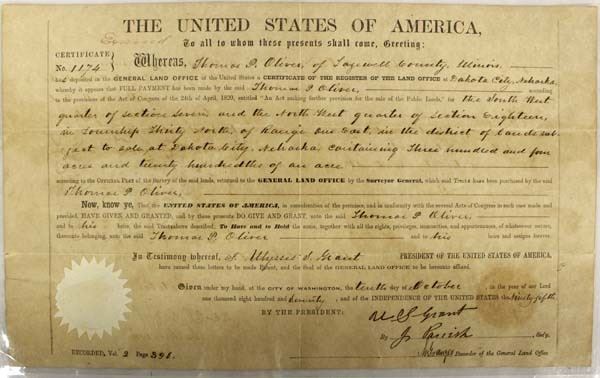 THE UNITED STATES OF AMERICA,
To all to whom these presents shall come, Greeting:
CERTIFICATE
No. 1174
Whereas, Thomas P. Oliver, of Tazewell County, Illinois,
has deposited in the GENERAL LAND OFFICE of the United States a CERTIFICATE OF THE REGISTER OF THE LAND OFFICE at Dakota City, Nebraska,
whereby it appears that FULL PAYMENT has been made by the said Thomas P. Oliver, according
to the provisions of the Act of Congress of the 24th of April, 1820, entitled "An Act making further provision for the sale of the Public Lands," for the South West
quarter of section Seven and the North West quarter of section Eighteen,
in Township Thirty North, of Range One East, in the district of lands sub-
ject to sale at Dakota City, Nebraska, containing Three hundred and four
acres and twenty hundredths of an acre
according to the OFFICIAL PLAT of the Survey of the said lands, returned to the GENERAL LAND OFFICE by the Surveyor General, which said TRACTS have been purchased by the said
Thomas P. Oliver,
Now, know ye, That the UNITED STATES OF AMERICA, in consideration of the premises, and in conformity with the several Acts of Congress in such case made and
provided, HAVE GIVEN AND GRANTED, and by these presents DO GIVE AND GRANT, unto the said Thomas P. Oliver
and to his heirs, the said Tract above described; To Have and to Hold the same, together with all the rights, privileges, immunities, and appurtenances, of whatsoever nature,
thereunto belonging, unto the said Thomas P. Oliver and to his heirs and assigns forever.
In Testimony whereof, I, Ulysses S. Grant PRESIDENT OF THE UNITED STATES OF AMERICA,
have caused these letters to be made Patent, and the Seal of the GENERAL LAND OFFICE to be hereunto affixed.
Given under my hand, at the CITY OF WASHINGTON, the tenth day of October, in the year of our Lord
one thousand eight hundred and seventy, and of the INDEPENDENCE OF THE UNITED STATES the ninety fifth
BY THE PRESIDENT: U. S. Grant
By J. Parrish, Sec'y.
Recorder of the General Land Office
RECORDED, Vol. 2 Page 398.